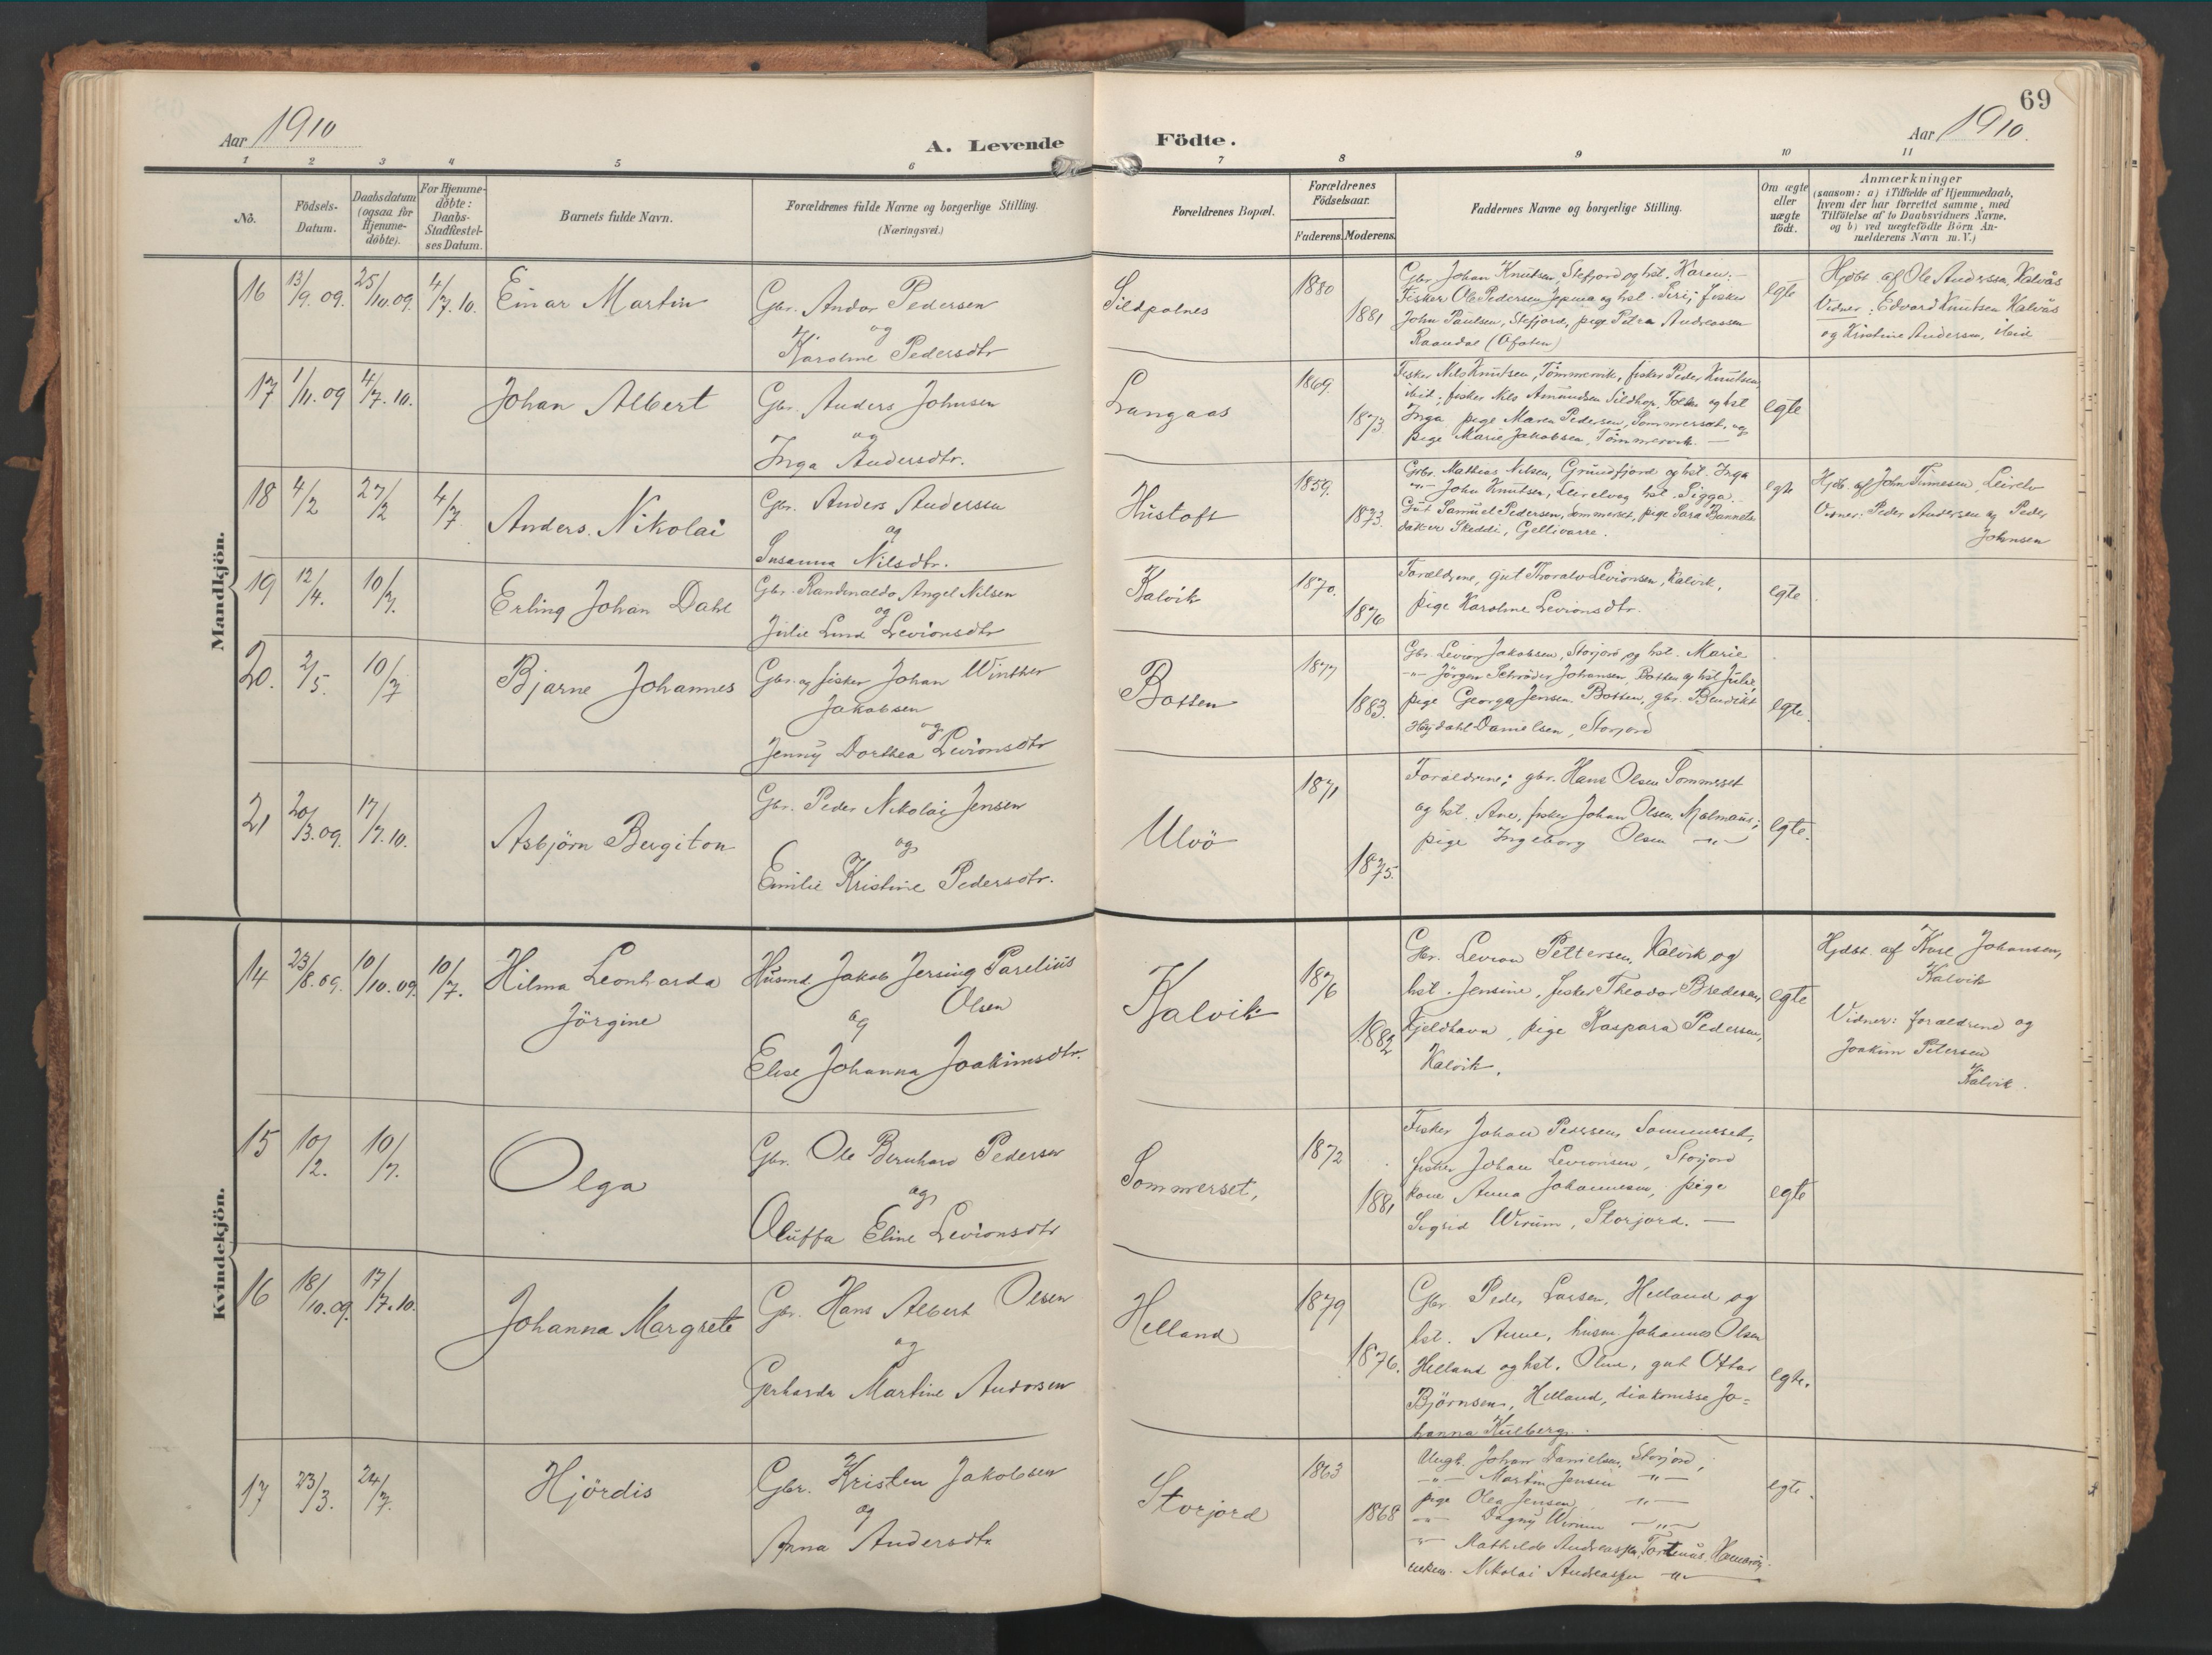 69
Aar 1910
A. Levende
Födte.
Aar 1910.
1 2 3 4 5 6 7 8 9 10 11
No.
Födsels-Datum.
Daabsdatum (ogsaa for Hjemme-döbte).
For Hjemme-döbte: Daabs-Stadfestel-ses Datum.
Barnets fulde Navn.
Forældrenes fulde Navne og borgerlige Stilling.
(Næringsvei.)
Forældrenes Bopæl.
Forældrenes Födselsaar.
Faderens. Moderens.
Faddernes Navne og borgerlige Stilling.
Om ægte eller uægte födt.
Anmærkninger
(saasom: a) i Tilfælde af Hjemmedaab,
hvem der har forrettet samme, med
Tilföielse af to Daabsvidners Navne,
og b) ved uægtefödte Börn An-
melderens Navn m.V.)
Mandkjön.
16 13/9.09. 25/10.09 4/7.10. Einar Martin
Gbr. Andor Pedersen
og
Karoline Pedersdtr
Sildpolnes
1880
1881
Gbr. Johan Knutsen, Stefjord og hst. Karen.
Fisker Ole Pedersen og hst. Siri; fisker
John Paulsen, Stefjord, pige Petra Andreassen
Raandal (Ofoten)
egte
Hjdbt. af Ole Anderssen, Kalvås
Vidner: Edvard Knutsen Kalvås
og Kristine Andersen, ibid
17 1/11.09 4/7.10. Johan Albert
Gbr. Anders Johnsen
og
Inga Andersdtr.
Langaas
1869.
1873.
Fisker Nils Knutsen, Tömmervik, fisker Peder Knutsen,
ibid; fisker Nils Amundsen Sildhop, og hst
Inga, pige Maren Pedersen, Sommerset, og
pige Marie Jakobsen, Tömmervik. —
egte
18 4/2 27/2 4/7 Anders. Nikolai
Gbr. Anders Anderssen
og
Susanna Nilsdtr.
Hustoft
1859.
1873.
Gbr. Mathias Nilsen, Grundfjord og hst. Inga
-"- John Knutsen, Leirelvag hst. Sigga.
Gut Samuel Pedersen, Sommerset, pige Sara
Skeddi, Gellivarre.
egte
Hjdb. af John Leirelv
Vidner: Peder Andersen og Peder
Johnsen
19 12/4. 10/7. Erling Johan Dahl
Gbr. Randinaldo Angel Nilsen
og
Julie Lund Levionsdtr
Kalvik
1870.
1876
Forældrene, gut Thoralv Levionsen, Kalvik,
pige Karoline Levionsdtr.
egte
20. 2/5. 10/7 Bjarne Johannes
Gbr. og fisker Johan Winther
Jakobsen
og
Jenny Dorthea Levionsdtr
Botten
1877
1883.
Gbr. Levion Jakobsen, Storjord og hst. Marie
-"- Jörgen Schröder Johansen, Botten og hst Julie,
pige Georga Jensen Botten, gbr. Bendikt
Hejdahl Danielsen, Storjord
egte.
21 20/3.09. 17/7.10. Asbjörn Bergiton
Gbr. Peder Nikolai Jensen
og
Emilie Kristine Pedersdtr.
Ulvö
1871
1875.
Forældrene; gbr. Hans Olsen Sommerset
og hst. Ane, fisker Johan Olsen,
pige Ingeborg Olsen -"-
egte.
Kvindekjön.
14 23/8.09. 10/10.09 10/7. Hilma Leonharda
Jörgine
Husmd. Jakob Jersing Parelius
Olsen
og
Elise Johanna Joakimsdtr.
Kalvik
1876
1882
Gbr. Levion Pettersen, Kalvik og
hst. Jensine, fisker Theodor Bredesen,
Fjeldhavn, pige Kaspara Pedersen,
Kalvik.
egte
Hjdbt af Karl Johansen,
Kalvik
Vidner: forældrene og
Joakim Petersen
Kalvik.
15 10/2. 10/7. Olga
Gbr. Ole Bernhard Pedersen
og
Oluffa Eline Levionsdtr
Sommerset,
1872
1881
Fisker Johan Pedersen, Sommerset,
fisker Johan Levionsen, Storjord
kone Anna Johannesen, pige
Sigrid Wirum, Storjord. —
egte
16 18/10.09. 17/7.10. Johanna Margrete
Gbr. Hans Albert Olsen
og
Gerharda Martine Andorsen
Helland
1879
1876.
Gbr. Peder Larsen, Helland og
hst. Anne, husm. Johannes Olsen
Helland og hst. Oline, gut Ottar
Björnsen, Helland, diakonisse Jo-
hanna Kulberg.
egte.
17 23/3. 24/7. Hjördis
Gbr. Kristen Jakobsen
og
Anna Andersdtr
Storjord
1863
1868
Ungk. Johan Danielsen, Storjord,
-"- Martin Jensen -"-
pige Olea Jensen -"-
-"- Dagny Wirum -"-
-"- Mathilde Andreassen, Hamarøy.
enkem. Nikolai Andreassen -"-
egte.